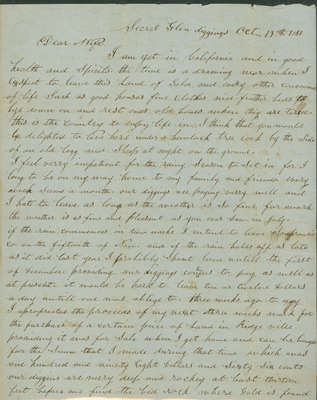 Secret Glen Diggings Oct 13th 1851
Dear Wife
I am yet in California and in good
health and Spirits the time is a drawing near when I
Expect to leave this Land of Gold and
of life Such as good houses fine clothes nice feather beds to
lye down on and rest our old bones when they are tired
this is the Country to enjoy life in I think that you would
be delighted to live here under a hemlock tree cook by the side
of an old log and Sleep at night on the ground
I feel very impatient for the rainy Season to Set in for I
long to be on my way home to my family and friends every
week Seems a month our diggings are paying very well and
I hate to leave as long as the weather is So fine for work
the weather is as fine and pleasant as you ever Seen in July
if the rain commences in two weeks I intend to leave
on the fifteenth of Nov and if the rain holds off as late
as it did last year I probably Shant leave untill the first
of December providing our diggings continue to pay as well as
at present it would be hard to leave ten or twelve dollars
a day untill one was obliged to three weeks ago to day
I apropriated the proceeds of my next three weeks work for
the purchase of a certain piece of land in Ridgeville
providing it was for Sale when I get home and can be bought
for the Sum that I made during that time which was
one hundred and ninety Eight dollars and Sixty Six cents
our diggins are very deep and rocky at least thirteen
feet before we find the bed rock where Gold is found